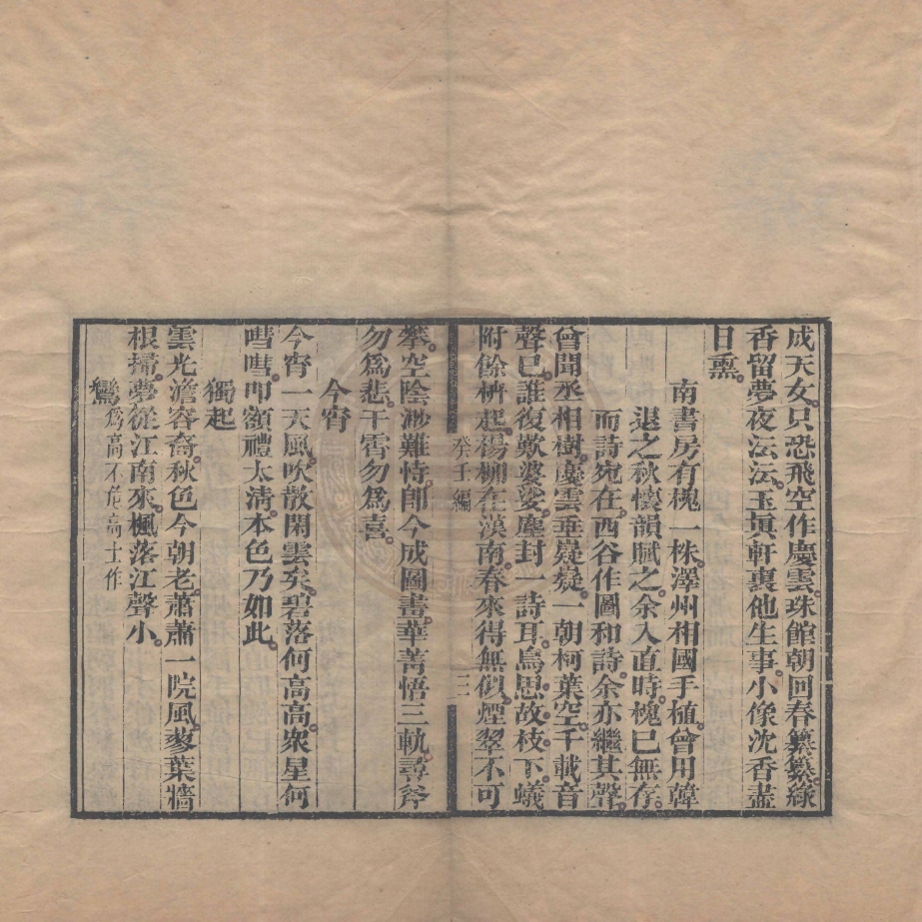 成天女只恐飛空作慶雲珠館朝回春纂纂綠
香留夢夜沄沄玉真軒裏他生事小像沈香盡
日熏
南書房有槐一株澤州相國手植曾用韓
退之秋懷韻賦之余入直時槐已無存
而詩宛在西谷作圖和詩余亦繼其聲
曾聞丞相樹慶雲垂嶷嶷一朝柯葉空千載音
聲巳誰復歎婆娑塵封一詩耳烏思故枝下蟻
附餘枿起楊柳在漢南春來得無俱煙翠不可
癸壬編
三
攀空陰渺難恃郎今成圖畫華菁悟三軌尋斧
勿爲悲干霄勿爲喜
今宵
今宵一天風吹散閑雲矣碧落何高高衆星何
嘒嘒叩額禮太淸本色乃如此
獨起
雲光澹容裔秋色今朝老蕭蕭一院風蓼葉牆
根掃夢從江南來楓落江聲小
鸞爲高不危高士作